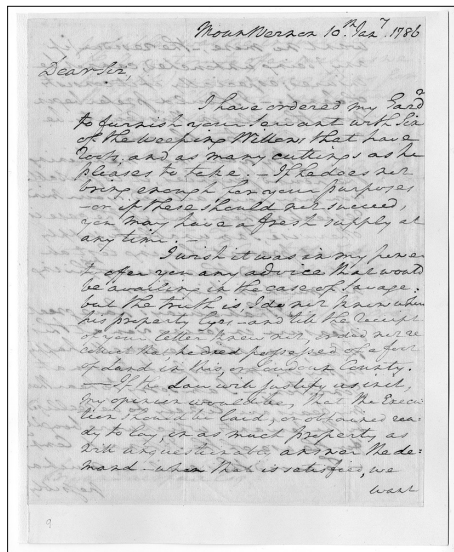 Mount Vernon 10th Jany. 1786
Dear Sir,
I have ordered my Gardr
to furnish your Servant with Six
of the Weeping Willows that have
roots, and as many cuttings as he
pleases to take. – If he does not
bring enough for your purposes
– or if these should not succeed,
you may have a fresh supply at
any time. –
I wish it was in my power
to offer you any advice that would
be availing in the case of Savage:
but the truth is I do not know where
his property lyes – and till the receipt
of your letter knew not, or did not re
collect that he died possessed of a foot
of Land in this, or Loudoun County.
– If the Law will justify it,
my opinion would be, that the Execu
tion should be laid, or obtained rea-
dy to lay, on as much property as
will unquestionably answer the de-
mand – when that is satisfied, we
want